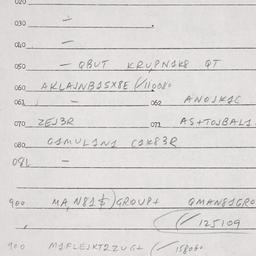 020
030 —
040 —
050 — QBUT KRUPN1K8 QT
060 AKLAJNB1SX8E (/110080
061 — 062 ANOJK1C
070 ZEJ3R 071 AS+TOJBAL1
080 G1MUL1N1 C1K83R
081 —
900 MA,N81$)GROUP+ QMAN81GRO
(/125109
900 M1FLEJKT2ZUG+ (/158080